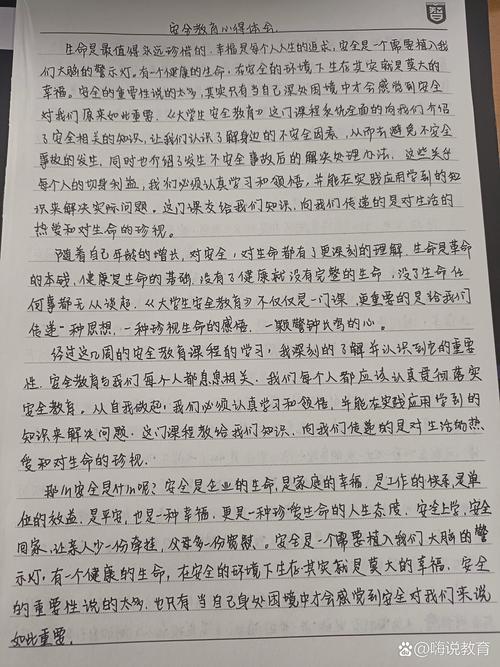 安全教育心得体会
生命是最值得永远珍惜的,幸福是每个人人生的追求,安全是一个需要植入我
们大脑的警示灯。有一个健康的生命,在安全的环境下生存其实就是莫大的
幸福。安全的重要性说的太多,其实只有当自己深处困境中才会感觉到安全
对我们原来如此重要。《大学生安全教育》这门课程系统全面的向我们介绍
了安全相关的知识,让我们认识了解身边的不安全因素,从而去避免不安全
事故的发生,同时也介绍了发生不安全事故后的解决处理办法,这些关乎
每个人的切身利益,我们必须认真学习和领悟,并能在实践应用学到的知
识来解决实际问题。这门课交给我们知识,向我们传递的是对生活的
热爱和对生命的珍视。
随着自己年龄的增长,对安全,对生命都有了更深刻的理解,生命是革命
的本钱,健康是生命的基础,没有了健康就没有完整的生命,没了生命任
何事都无从谈起,《大学生安全教育》不仅仅是一门课,更重要的是给我们
传递一种思想,一种珍视生命的感悟,一颗警钟长鸣的心。
经过这几周的安全教育课程的学习,我深刻的了解并认识到它的重要
性,安全教育与我们每个人都息息相关,我们每个人都应该认真贯彻落实
安全教育。从自我做起,我们必须认真学习和领悟,并能在实践应用学到的
知识来解决问题,这门课程教给我们知识,向我们传递的是对生活的热
爱和对生命的珍视.
那么安全是什么呢?安全是企业的生命,是家庭的幸福,是工作的快乐,是单
位的效益,是平安,也是一种幸福,更是一种珍爱生命的人生态度,安全上学,安全
回家,让亲人少一份牵挂,父母多一份宽慰。安全是一个需要植入我们大脑的警
示灯,有一个健康的生命,在安全的环境下生存其实就是莫大的幸福,安全
的重要性说的太多,也只有当自己身处困境中才会感觉到安全对我们来说
如此重要.
嗨说教育